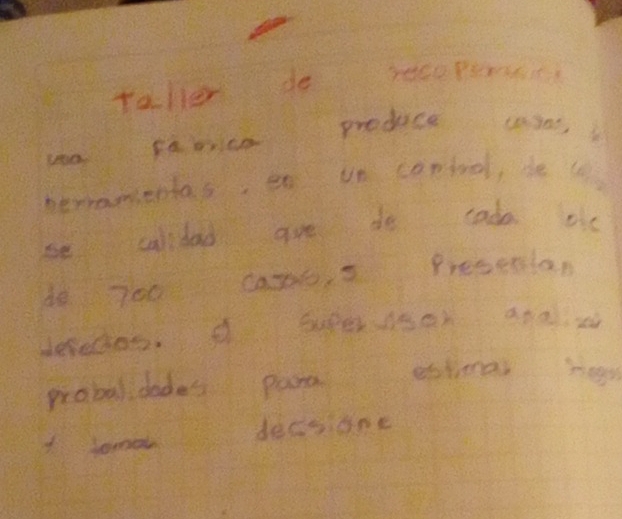 taller de recoperacion
una fabrica produce casas,
herramientas, en un control, de
se calidad que de cada lote
de 700 casas, 5 Presentan
defectos. el supervisor analiza
probalidades para estimar riegos
y tomar decsione